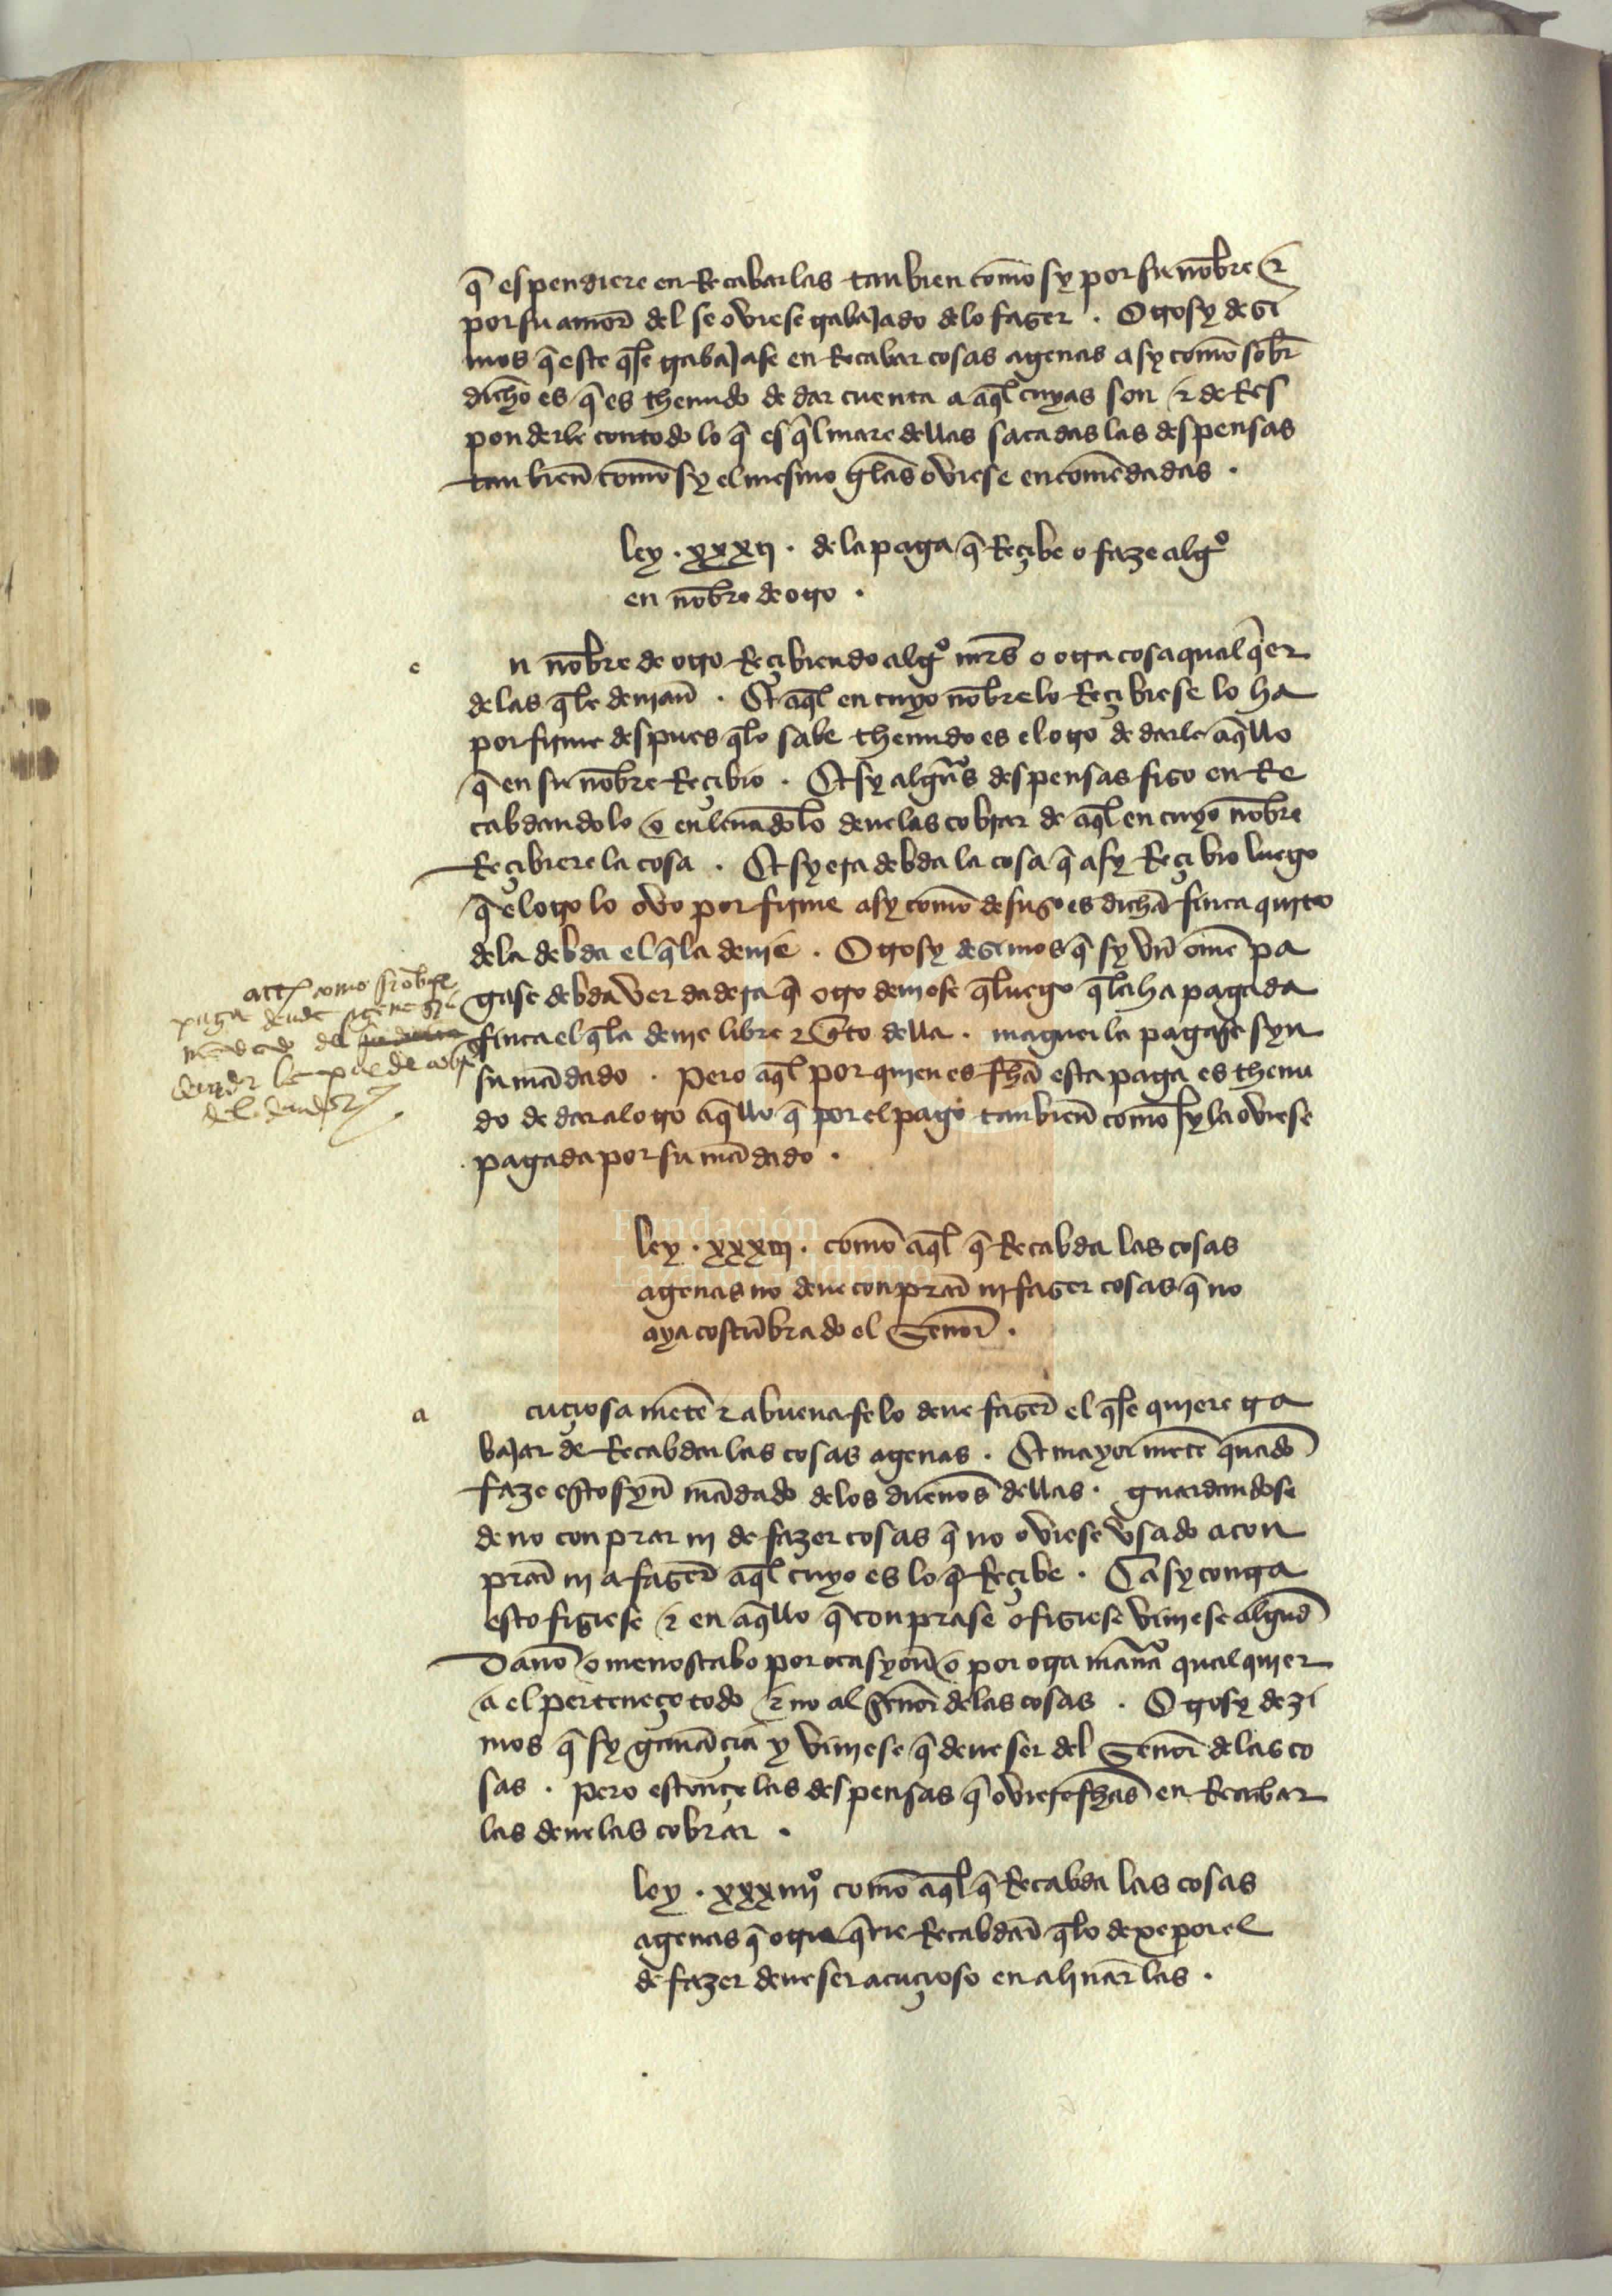 q̃ espendiere en Recabarlas tan bien com̃o sy por su nonb̃re &
por su amor̃ del se oviese trabajado delo faser . Otrosy desi
mos q̃ este q̃ se trabajase en Recabar cosas agenas asy com̃o sobr̃
dich̃o es q̃ es thenudo de dar cuenta a aq̃l cuyas son & de Res
ponderle con todo lo q̃ esq̃lmare dellas sacadas las despensas
tan bien̄ com̃o sy el mesmo gelas oviese encomēdadas .
ley . xxxij . dela paga q̃ Reçibe o faze algº
en nõbre de otro .
e n nõbre de otro Reçibiendo algº mrs̃ o otra cosa qual q̃er
delas q̃ le devian̄ . Et aq̃l en cuyo nõbre lo Reçibiese lo ha
por firme despues q̃ lo sabe thenudo es el otro de darle aq̃llo
q̃ en su nõbre Reçibio . Et sy algũas despensas fiso en Re
cabdandolo o en levãdolo develas cobrar de aq̃l en cuyo nõbre
Reçibiere la cosa . Et sy era debda la cosa q̃ asy Reçibio luego
q̃ el otro lo ovo por firme asy com̃o desuso es dich̃o finca quito
dela debda el q̃ la devie . Otrosy desimos q̃ sy vn̄ om̃e pa
gase debda verdadera q̃ otro deviese q̃ luego q̃ la ha pagada
finca el q̃ la devie libre & q̃to della . maguer la pagase syn
su mãdado . Pero aq̃l por quien es fh̃a esta paga es thenu
do de dar al otro aq̃llo q̃ por el pago tan bien̄ com̃o sy la oviese
pagada por su mãdado .
paga deude agene syn
mãdado del
le puede cobrar
del deudor
Fundación
ley . xxxiij . com̃o aq̃l q̃ Recabda las cosas
agenas no deve conprar̃ ni faser cosas q̃ no
aya costũbrado el Señor̃ .
a cuçiosa mẽte & a buena fe lo deve faser̃ el q̃ se quiere tra
bajar de Recabdar las cosas agenas . Et mayor mẽte quãdo
faze esto syn̄ mãdado delos dueños dellas . guardandose
de no conprar ni de fazer cosas q̃ no oviese vsado a con
prar̃ ni a faser̃ aq̃l cuyo es lo q̃ Reçibe . Ca sy contra
esto fisiese & en aq̃llo q̃ conprase o fisiese viniese algund̃
daño o menoscabo por ocasyon̄ o por otra manª qual quier
a el perteneçe todo & no al señor̃ delas cosas . Otrosy dezi
mos q̃ sy ganãçia y viniese q̃ deve ser del Señor̃ delas co
sas . Pero estonçe las despensas q̃ oviere fh̃as en Recabar
las develas cobrar .
ley . xxxiiijº com̃o aq̃l q̃ Recabda las cosas
agenas q̃ otro q̃rie Recabdar̃ q̃ lo dexe por el
de fazer deve ser acuçioso en aliñar̃ las .